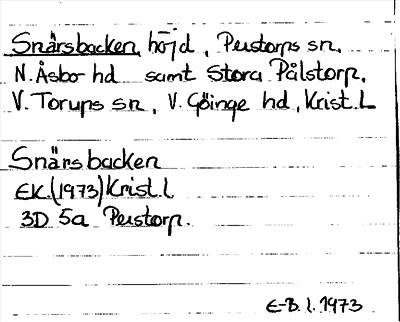 Snärsbacken, höjd, Perstorps sn,
N. Åsbo hd samt Stora Pålstorp,
V. Torups sn, V. Göinge hd, Krist. L
Snärsbacken
EK.(1973) Krist. l
3D 5a Perstorp.
E-B. l. 1973